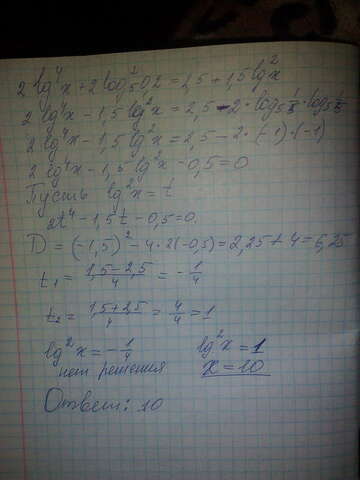 2 lg⁴x + 2 log₅² 0,2 = 2,5 + 1,5 lg²x
2 lg⁴x - 1,5 lg²x = 2,5 - 2 · log₅ 1/5 · log₅ 1/5
2 lg⁴x - 1,5 lg²x = 2,5 - 2 · (-1) · (-1)
2 lg⁴x - 1,5 lg²x - 0,5 = 0
Пусть lg²x = t
2t⁴ - 1,5t - 0,5 = 0.
D = (-1,5)² - 4 · 2(-0,5) = 2,25 + 4 = 6,25
t₁ = (1,5 - 2,5)/4 = -1/4
t₂ = (1,5 + 2,5)/4 = 4/4 = 1
lg²x = -1/4 lg²x = 1
нет решения x = 10
Ответ: 10